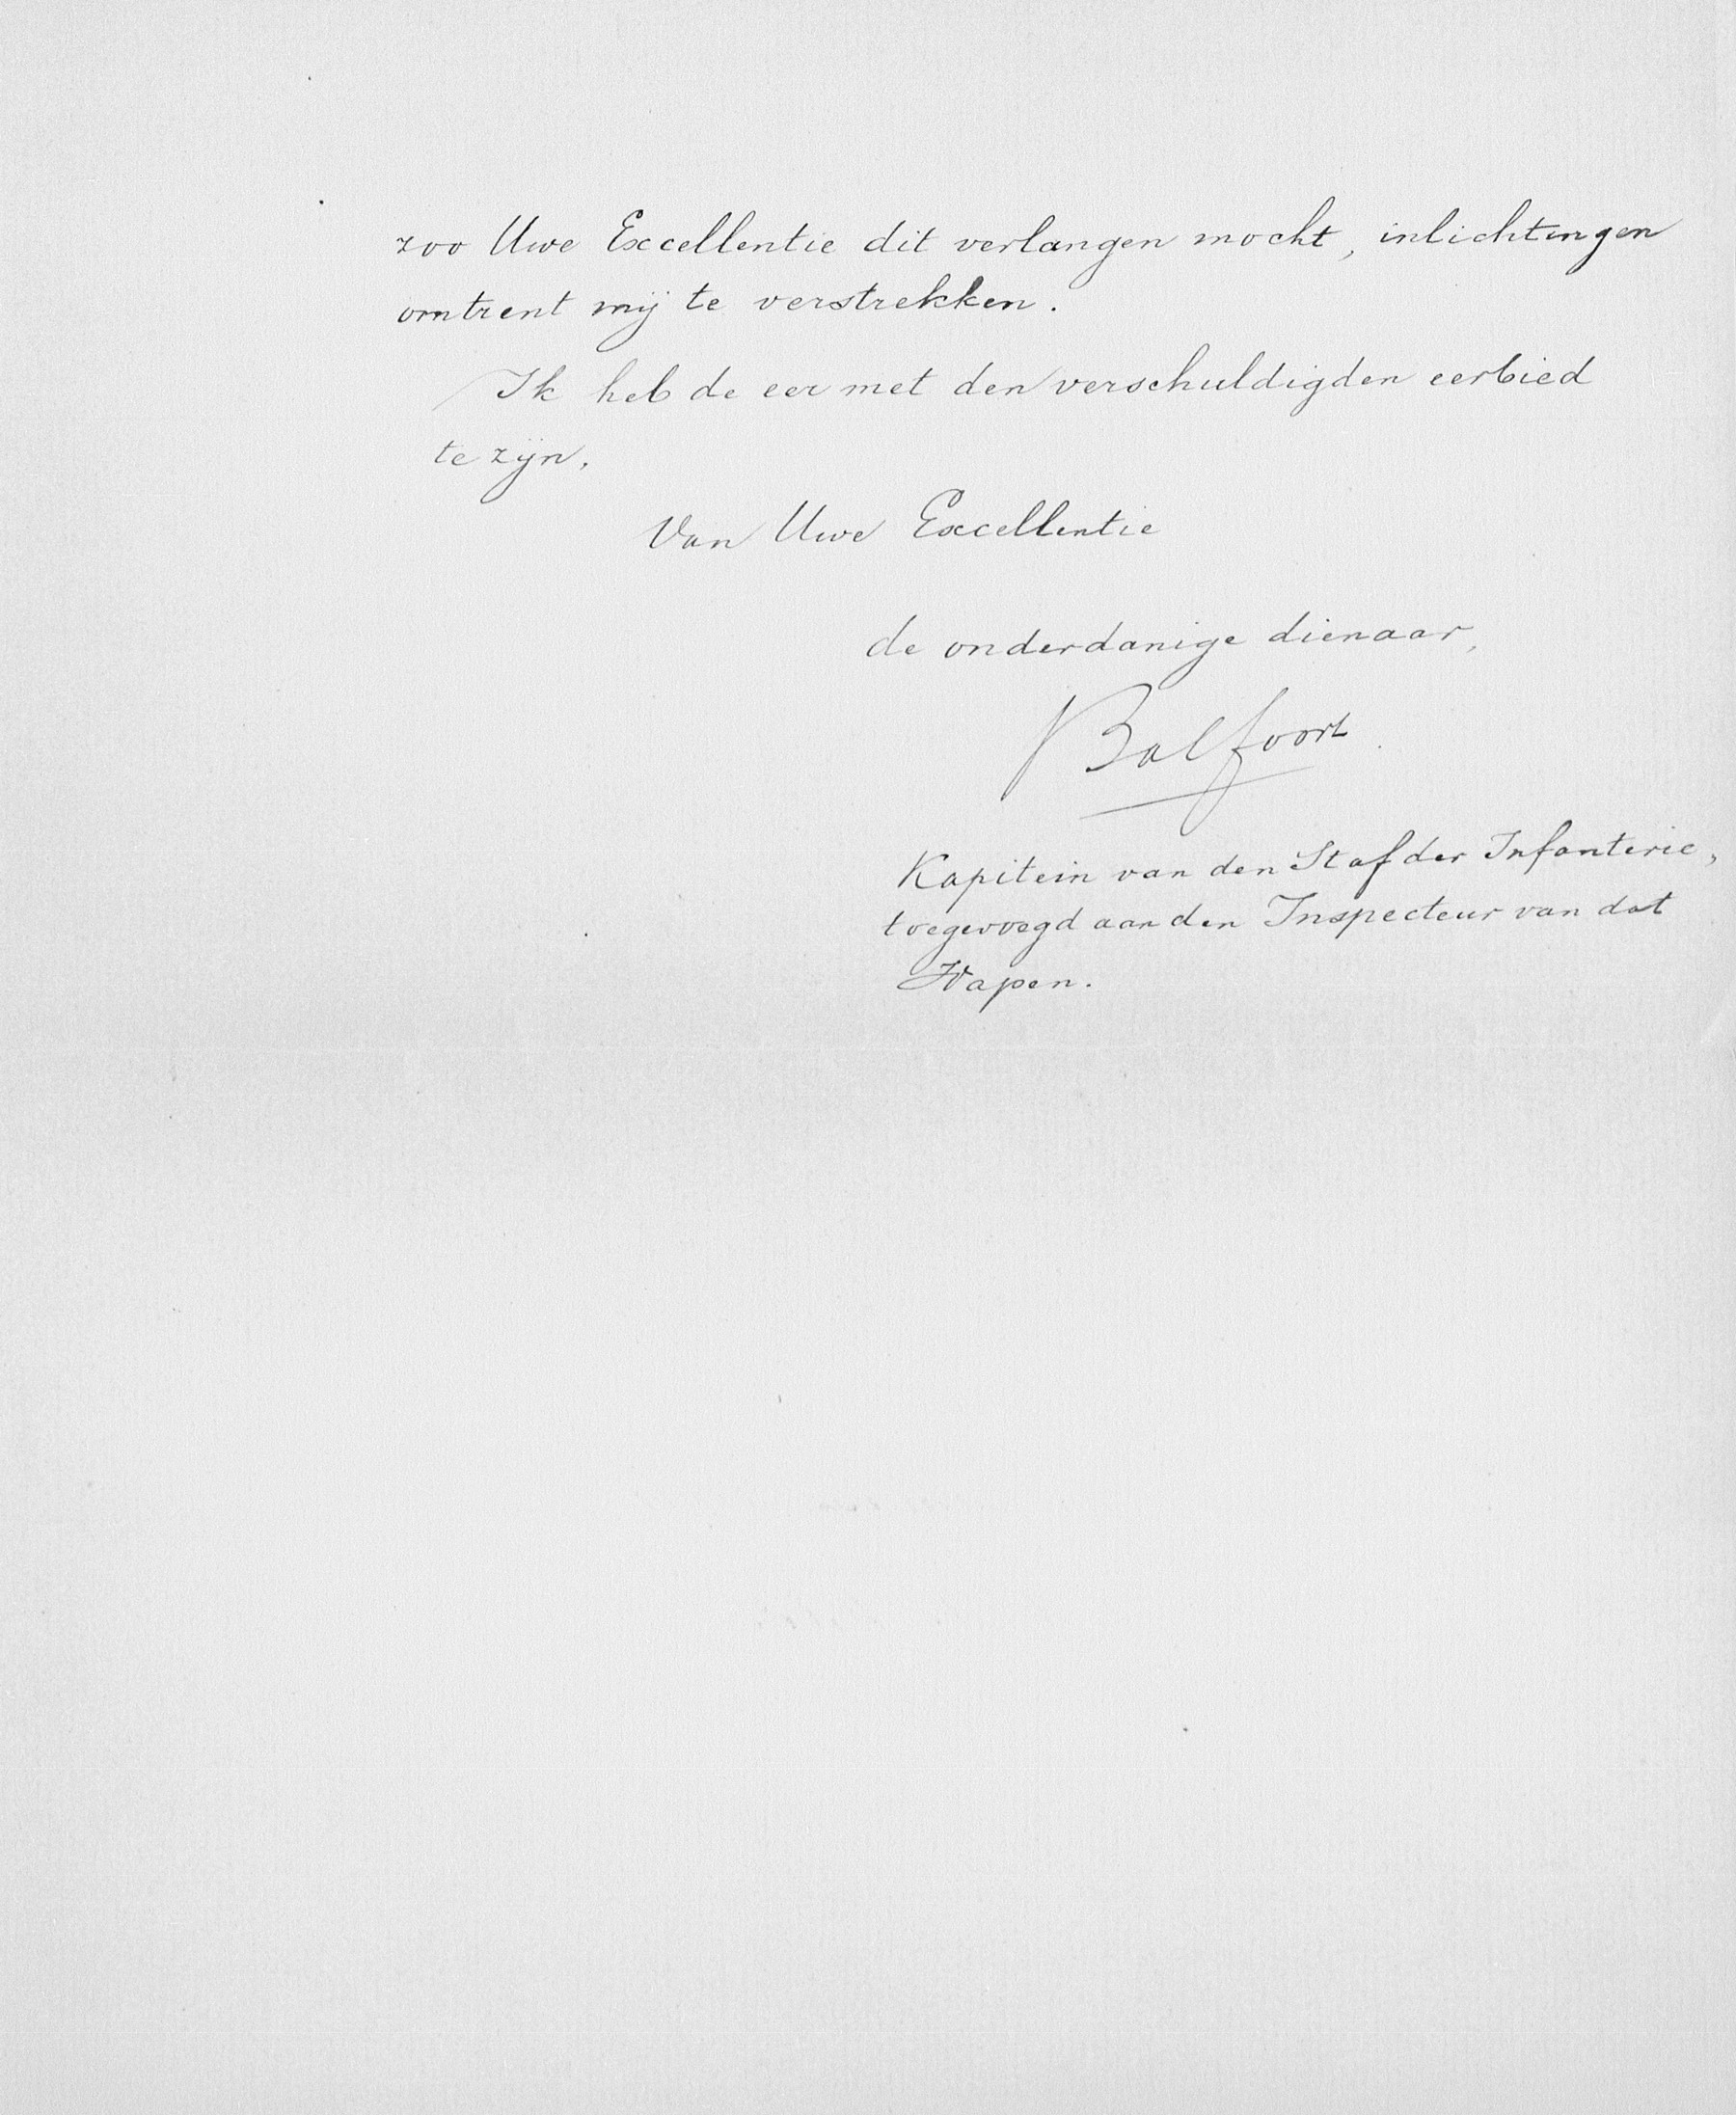 zoo Uwe Excellentie dit verlangen mocht, inlichtingen
omtrent mij te verstrekken.
Ik heb de eer met den verschuldigden eerbied
te zijn.
Van Uwe Excellentie
de onderdanige dienaar,
Balfoort
Kapitein van den Staf der Infanterie,
toegevoegd aan den Inspecteur van dat
Wapen.